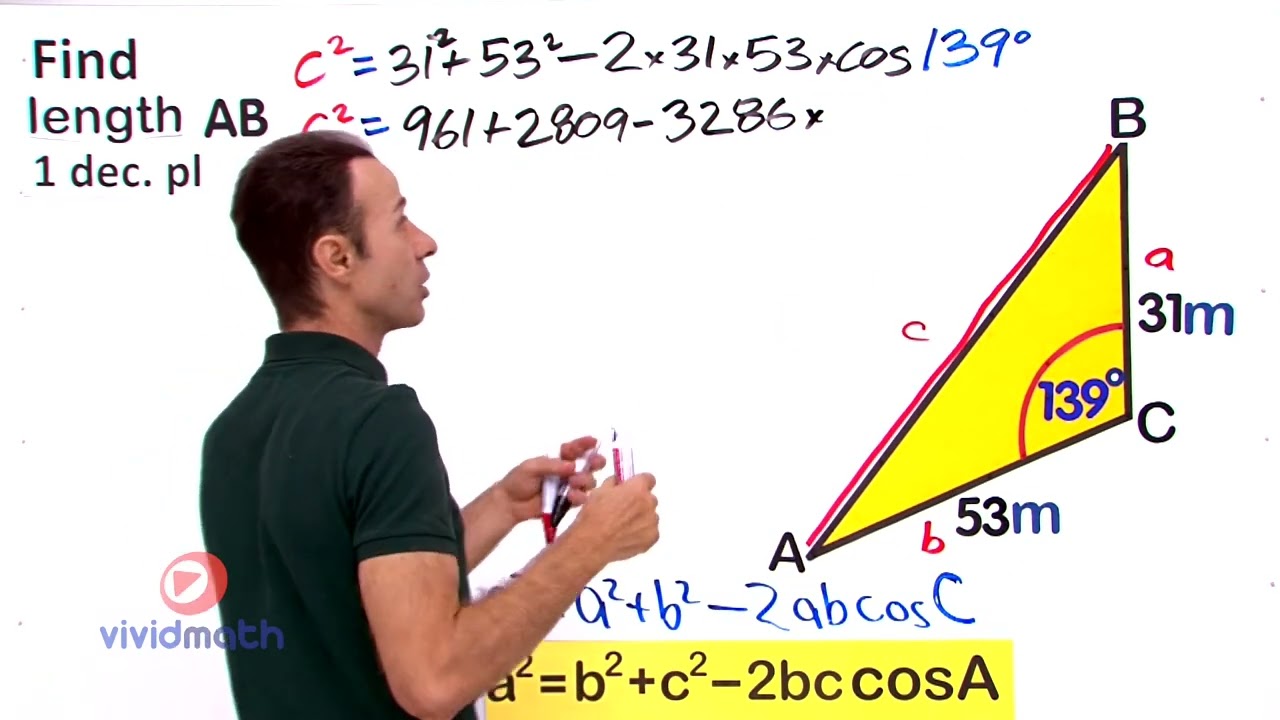 Find
length AB
1 dec. pl
c² = 31² + 53² − 2 × 31 × 53 × cos 139°
c² = 961 + 2809 − 3286 ×
B
a
31m
c
139°
C
53m
b
A
= a² + b² − 2abcosC
a² = b² + c² − 2bc cosA
vividmath